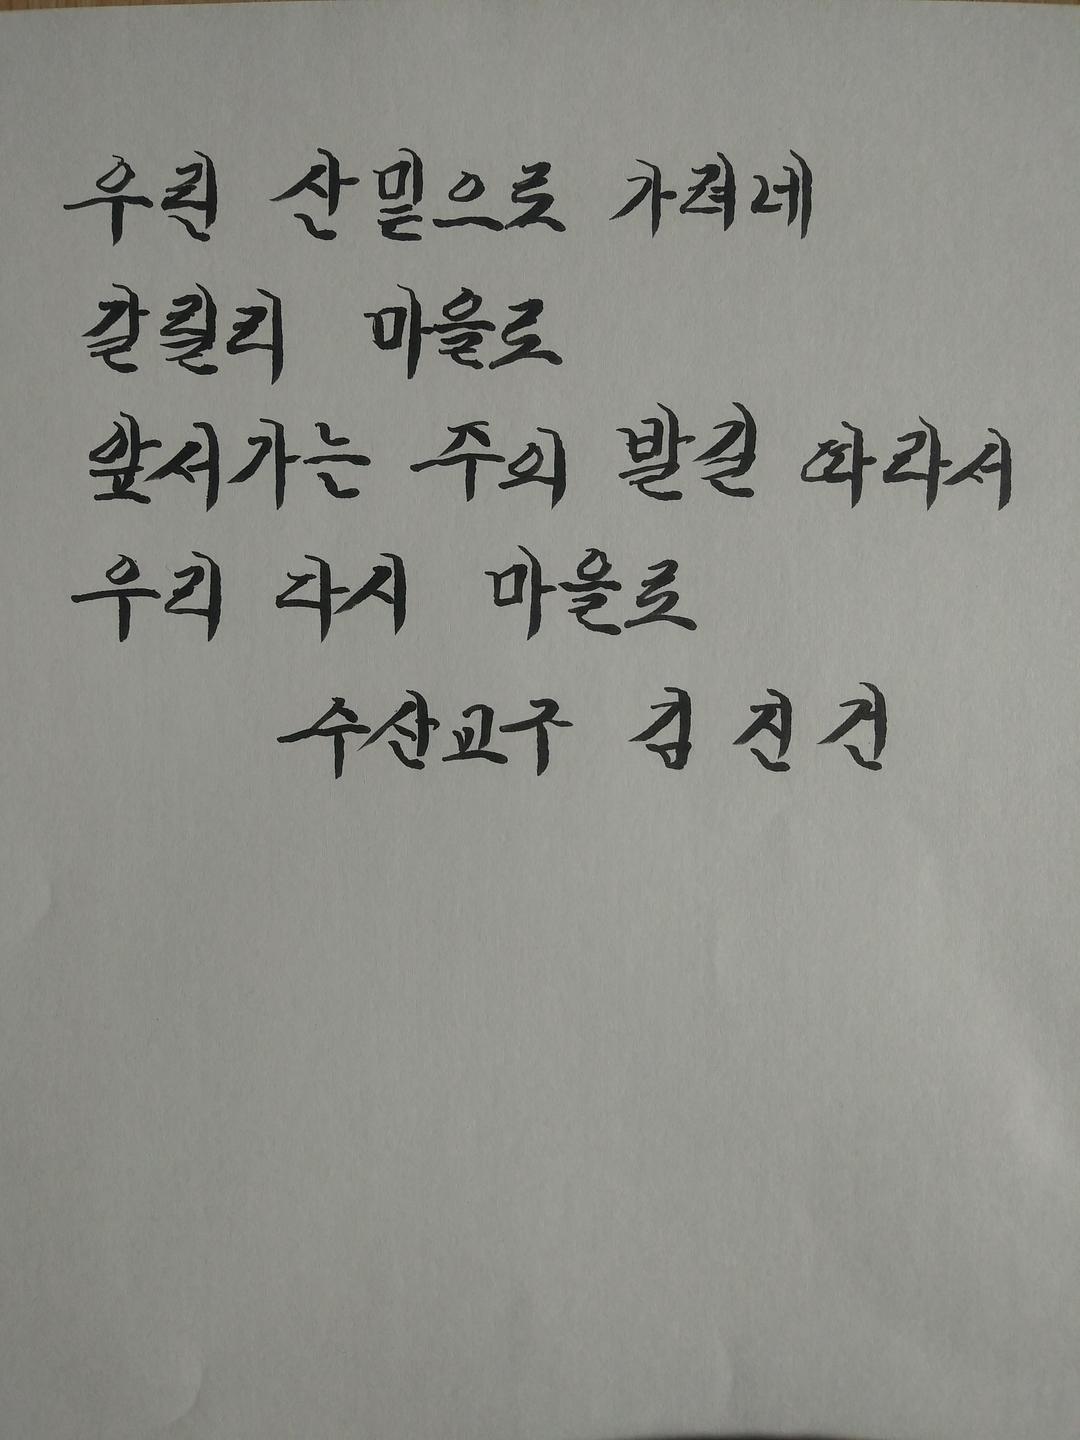 우린 산 밑으로 가려네
갈릴리 마을로
앞서가는 주의 발길 따라서
우리 다시 마을로
수산교구 김 진 건